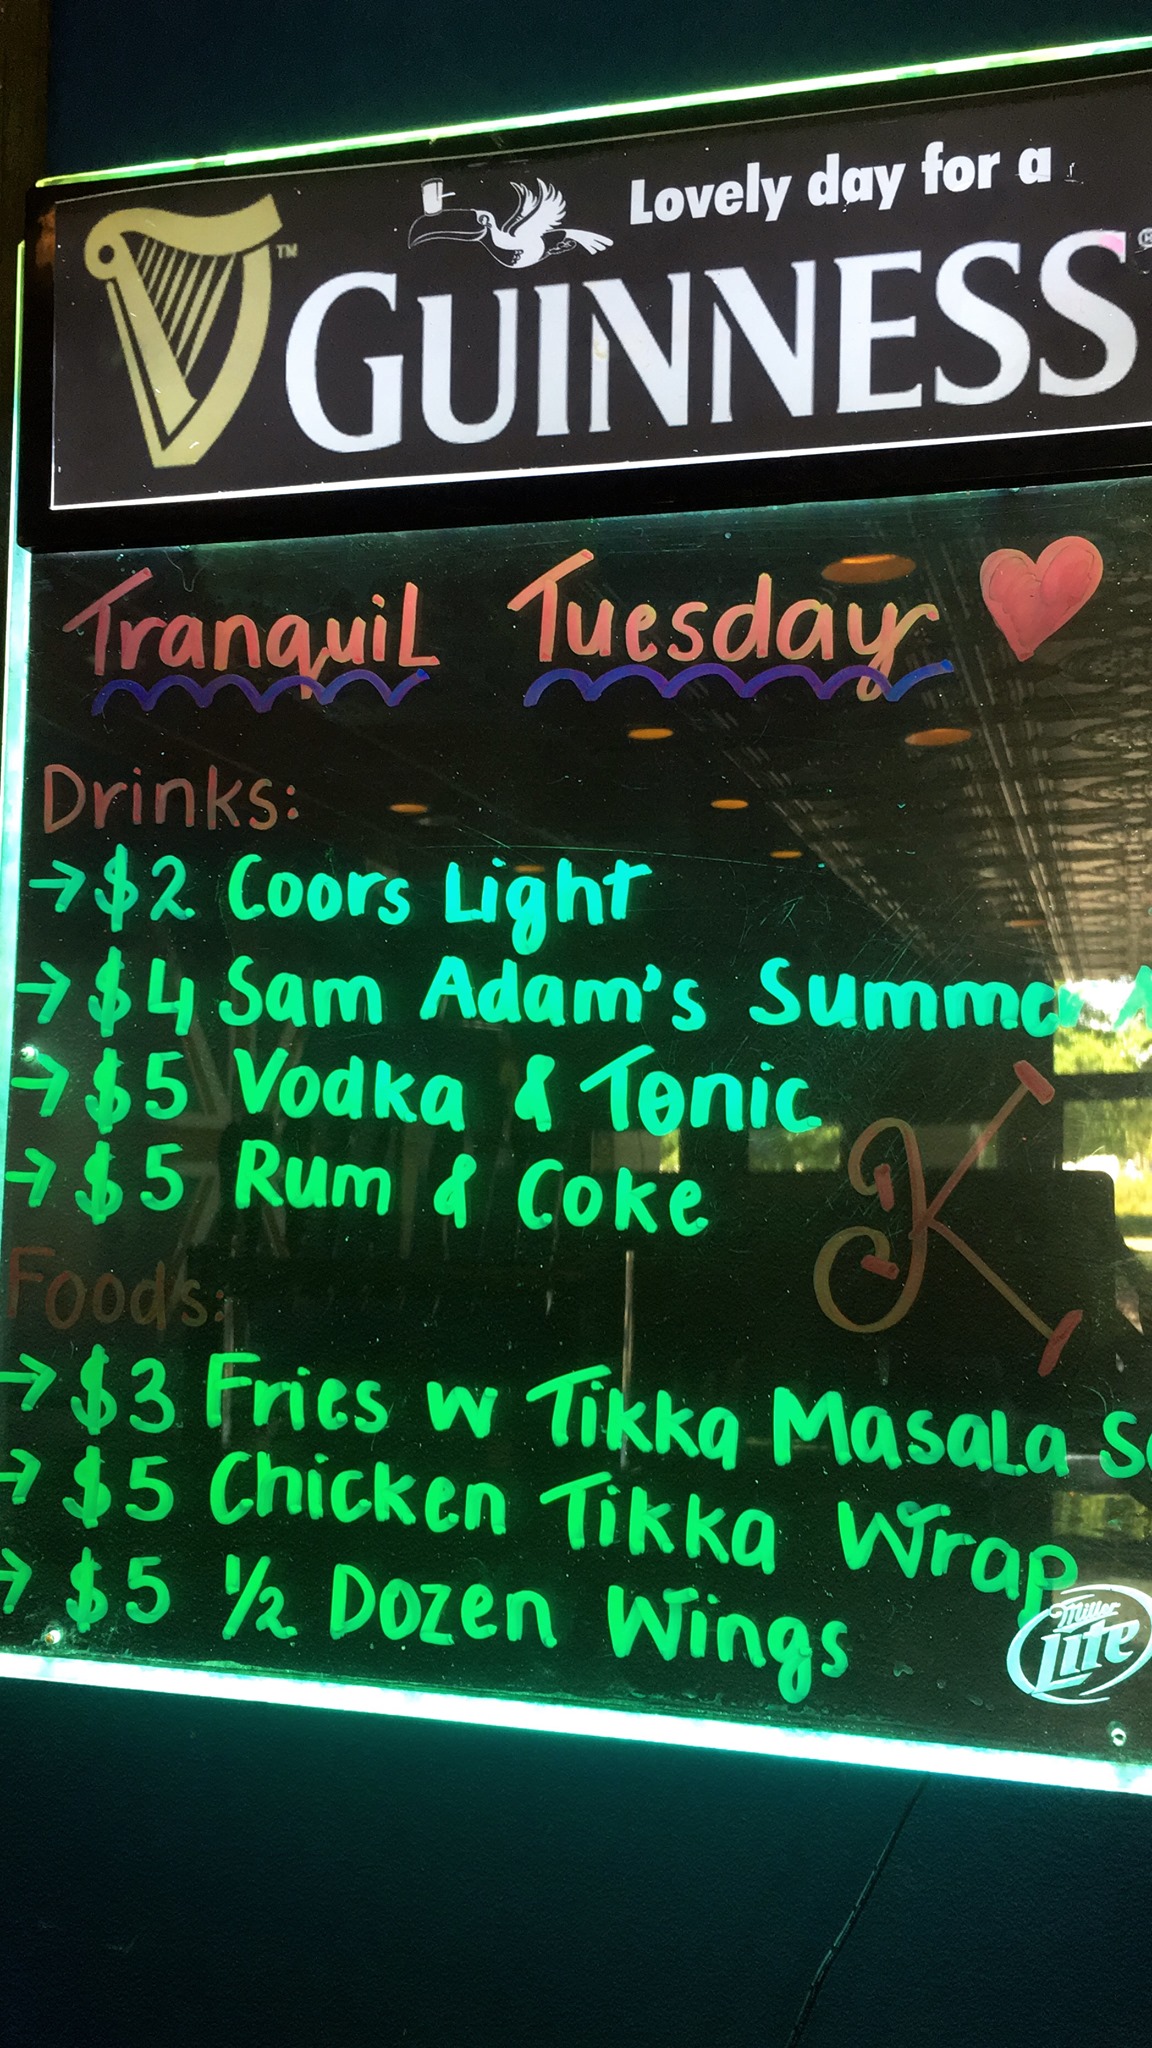 Lovely day for a
GUINNESS
Tranquil Tuesday
Drinks:
→ $2 Coors Light
→ $4 Sam Adam's Summer
→ $5 Vodka & Tonic
→ $5 Rum & Coke
K
Foods:
→ $3 Fries w Tikka Masala
→ $5 Chicken Tikka Wrap
→ $5 1/2 Dozen Wings
Miller
Lite